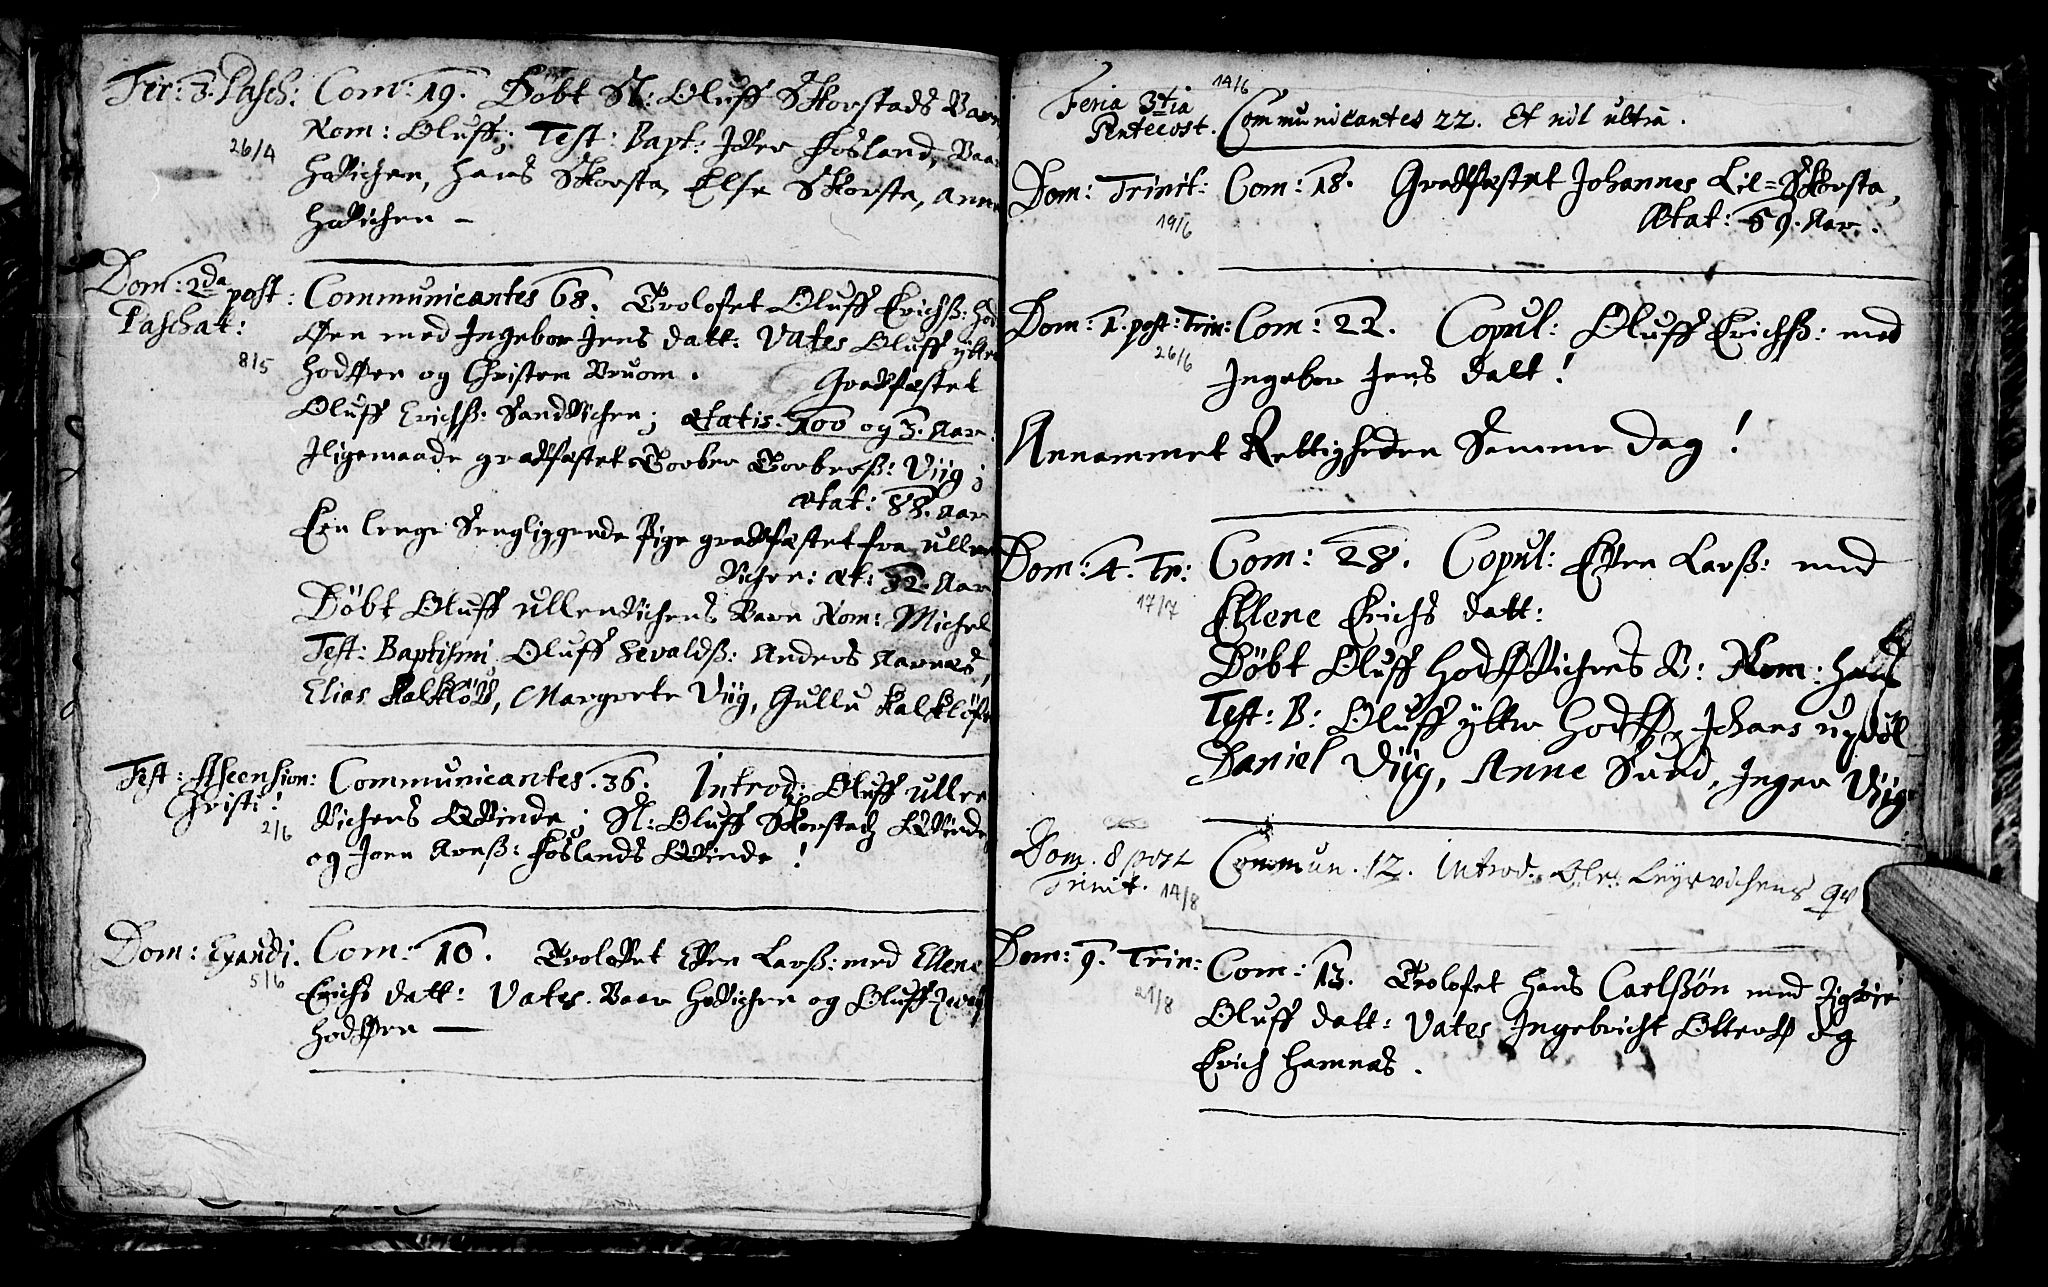 Fer: 3. Pasch: Com: 19. Döbt Sl: Oluff Skorstads Barn
26/4 Nom: Oluff; Test: Bapt: Iver Fosland, Baar
Hovichen, Hans Skorsta, Else Skorsta, Anne
Hovichen —
Dom: 2da post Paschat: Communicantes 68. Trolofvet Oluff Erichß: Hod
Øen med Ingebor Jens datt: Vates Oluff ytter
8/5 Hodøen og Christen Bruom. Gradfæstet
Oluff Erichß: Sandvichen; ætatis. 100 og 3. Aar.
Iligemaade gradfæstet Torber Torberß: Viig;
ætat: 88. Aar
Een lenge Sengliggende Pige gradfæstet fra Ullen
vichen: æt: 32. Aar
Döbt Oluff Ullenvichens Barn Nom: Michel
Test: Baptismi Oluff Sevaldß: Anders Aarnes,
Elias Kalkløv, Margrete Viig, Gullu Kalkløft
Fest: Ascension: Christi! Communicantes. 36. Introd: Oluff Ullen
2/6 vichens Qvinde; Sl: Oluff Skorstads Qvinde,
og Joen Arnß: Foslands Qvinde!
Dom: Exaudi. Com: 10. Trolofvet Even Larß: med Ellene
5/6 Erichs datt: Vates. Baar Hovichen og Oluff
Hodøen —
Feria 3tia Pentecost. 14/6 Communicantes 22. Et nil ultra.
Dom: Trinit: Com: 18. Gradfæstet Johannes Lil=Skorsta,
19/6 Ætat: 59. Aar.
Dom: 1. post: Trin: Com: 22. Copul: Oluff Erichß: med
26/6 Ingebor Jens datt!
Annammet Rettigheden Samme Dag!
Dom: 4. Tr: Com: 28. Copul: Even Larß: med
17/7 Ellene Erichs datt:
Döbt Oluff Hodøvichens B: Nom: Hans
Test: B: Oluff ytter Hodø, Johans
Daniel Viig, Anne Sund, Inger Viig
Dom. 8 post Trinit. 14/8 Commun. 12. Introd. Ole Leyrvichens qv
Dom: 9. Trin: Com: 13. Trolofvet Hans Carlßön med
21/8 Oluff datt: Vates Ingebricht Otterø og
Erich Hamnes.